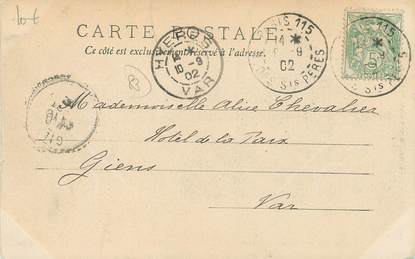 lot
CARTE POSTALE
Ce côté est exclusivement réservé à l'adresse.
HYÈRES
9
02
VAR
PARIS 115
4 *
9
02
DES Sts PÈRES
115
Sts PÈRES
Mademoiselle Alice Chevalier
Hotel de la Paix
Giens
Var